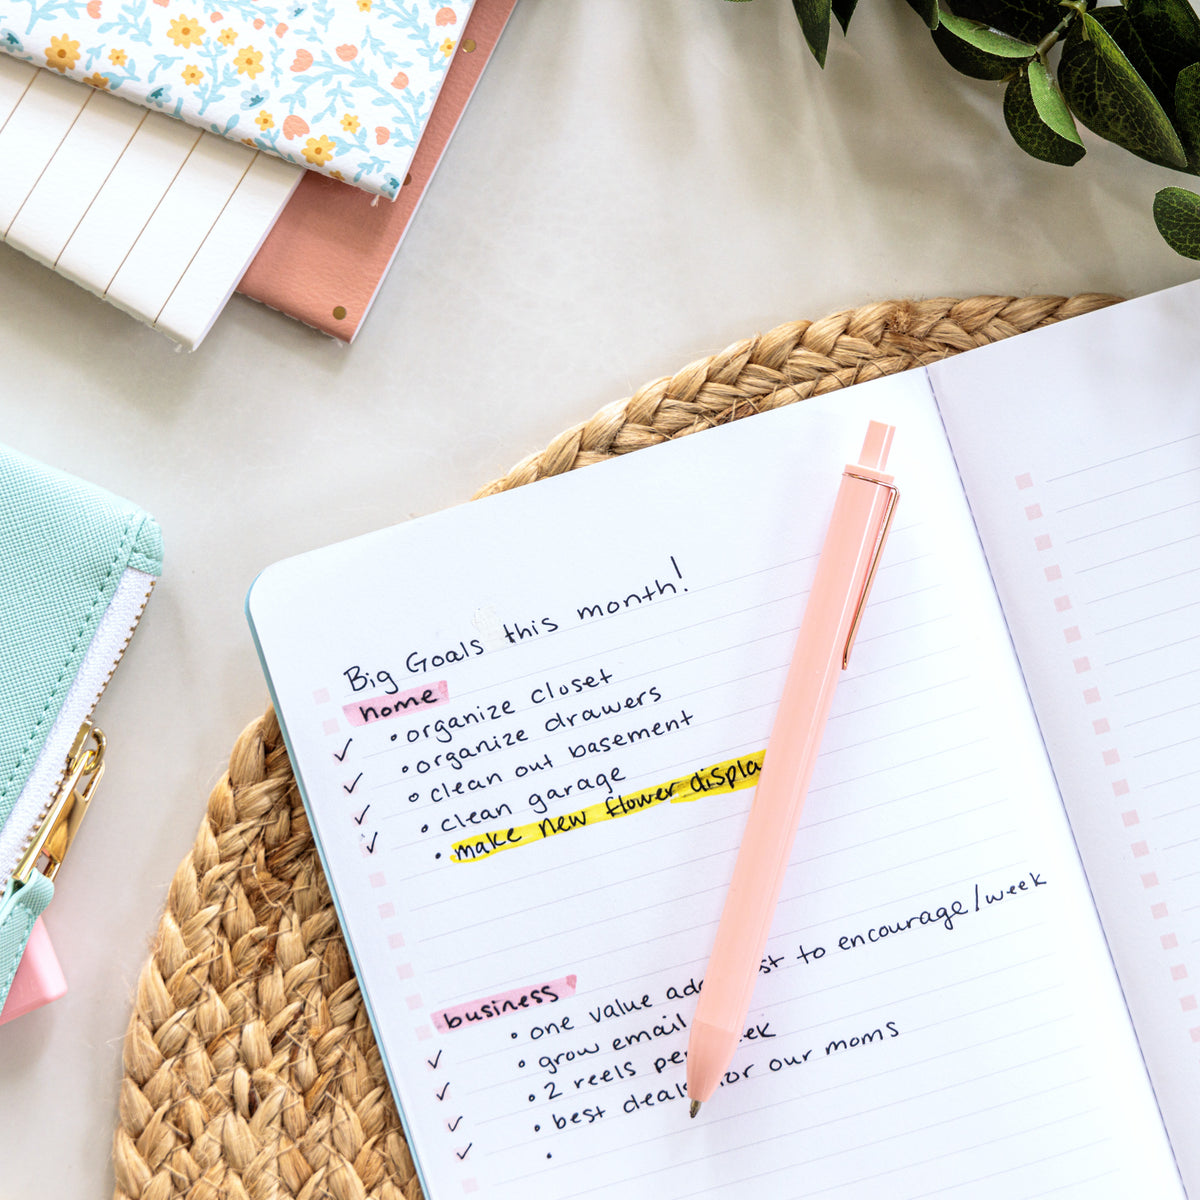 Big Goals this month!
home
✓ • organize closet
✓ • organize drawers
✓ • clean out basement
✓ • clean garage
• make new flower displa
business
✓ • one value to encourage/week
✓ • grow email
✓ • 2 reels
✓ • best deals for our moms
•